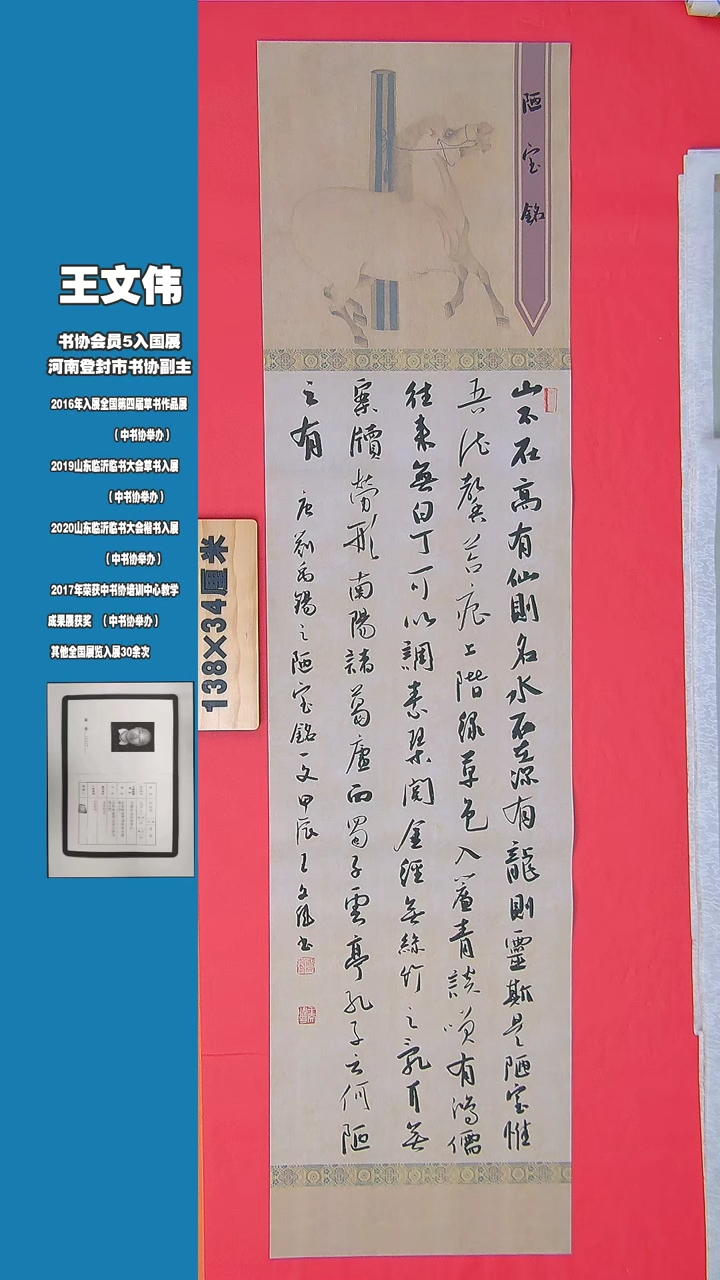 王文伟
书协会员5入国展
河南登封市书协副主
2016年入展全国第四届草书作品展
（中书协举办）
2019山东临沂临书大会草书入展
（中书协举办）
2020山东临沂临书大会楷书入展
（中书协举办）
2017年荣获中书协培训中心教学
成果展获奖 （中书协举办）
其他全国展览入展30余次
138×34厘米
陋室銘
山不在高有仙則名水不在深有龍則靈斯是陋室惟
吾德馨苔痕上階綠草色入簾青談咲有鴻儒
往來無白丁可以調素琴閱金經無絲竹之亂耳無
案牘勞形南陽諸葛廬西蜀子雲亭孔子云何陋
之有
唐劉禹錫之陋室銘一文甲辰王文偉書